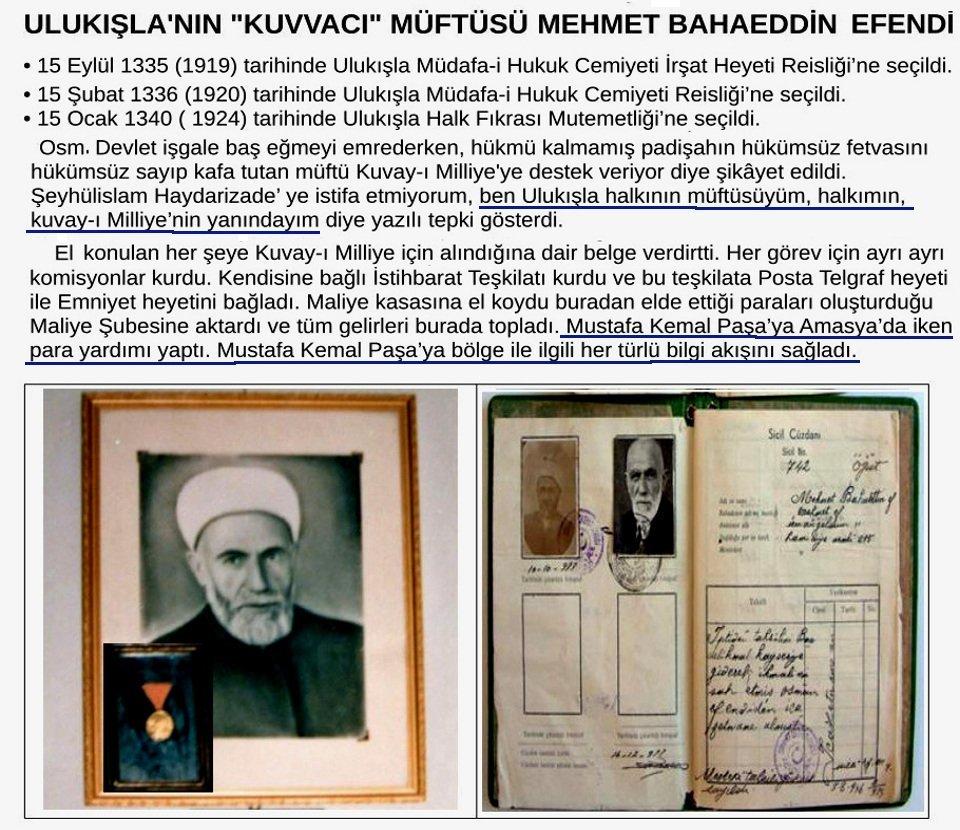 ULUKIŞLA'NIN "KUVVACI" MÜFTÜSÜ MEHMET BAHAEDDİN EFENDİ
• 15 Eylül 1335 (1919) tarihinde Ulukışla Müdafa-i Hukuk Cemiyeti İrşat Heyeti Reisliği’ne seçildi.
• 15 Şubat 1336 (1920) tarihinde Ulukışla Müdafa-i Hukuk Cemiyeti Reisliği’ne seçildi.
• 15 Ocak 1340 ( 1924) tarihinde Ulukışla Halk Fıkrası Mutemetliği’ne seçildi.
Osm. Devlet işgale baş eğmeyi emrederken, hükmü kalmamış padişahın hükümsüz fetvasını
hükümsüz sayıp kafa tutan müftü Kuvay-ı Milliye'ye destek veriyor diye şikâyet edildi.
Şeyhülislam Haydarizade’ ye istifa etmiyorum, ben Ulukışla halkının müftüsüyüm, halkımın,
kuvay-ı Milliye’nin yanındayım diye yazılı tepki gösterdi.
El konulan her şeye Kuvay-ı Milliye için alındığına dair belge verdirtti. Her görev için ayrı ayrı
komisyonlar kurdu. Kendisine bağlı İstihbarat Teşkilatı kurdu ve bu teşkilata Posta Telgraf heyeti
ile Emniyet heyetini bağladı. Maliye kasasına el koydu buradan elde ettiği paraları oluşturduğu
Maliye Şubesine aktardı ve tüm gelirleri burada topladı. Mustafa Kemal Paşa’ya Amasya’da iken
para yardımı yaptı. Mustafa Kemal Paşa’ya bölge ile ilgili her türlü bilgi akışını sağladı.
Sicil Cüzdanı
Sicil No.
742
Öğüt
Mehmet